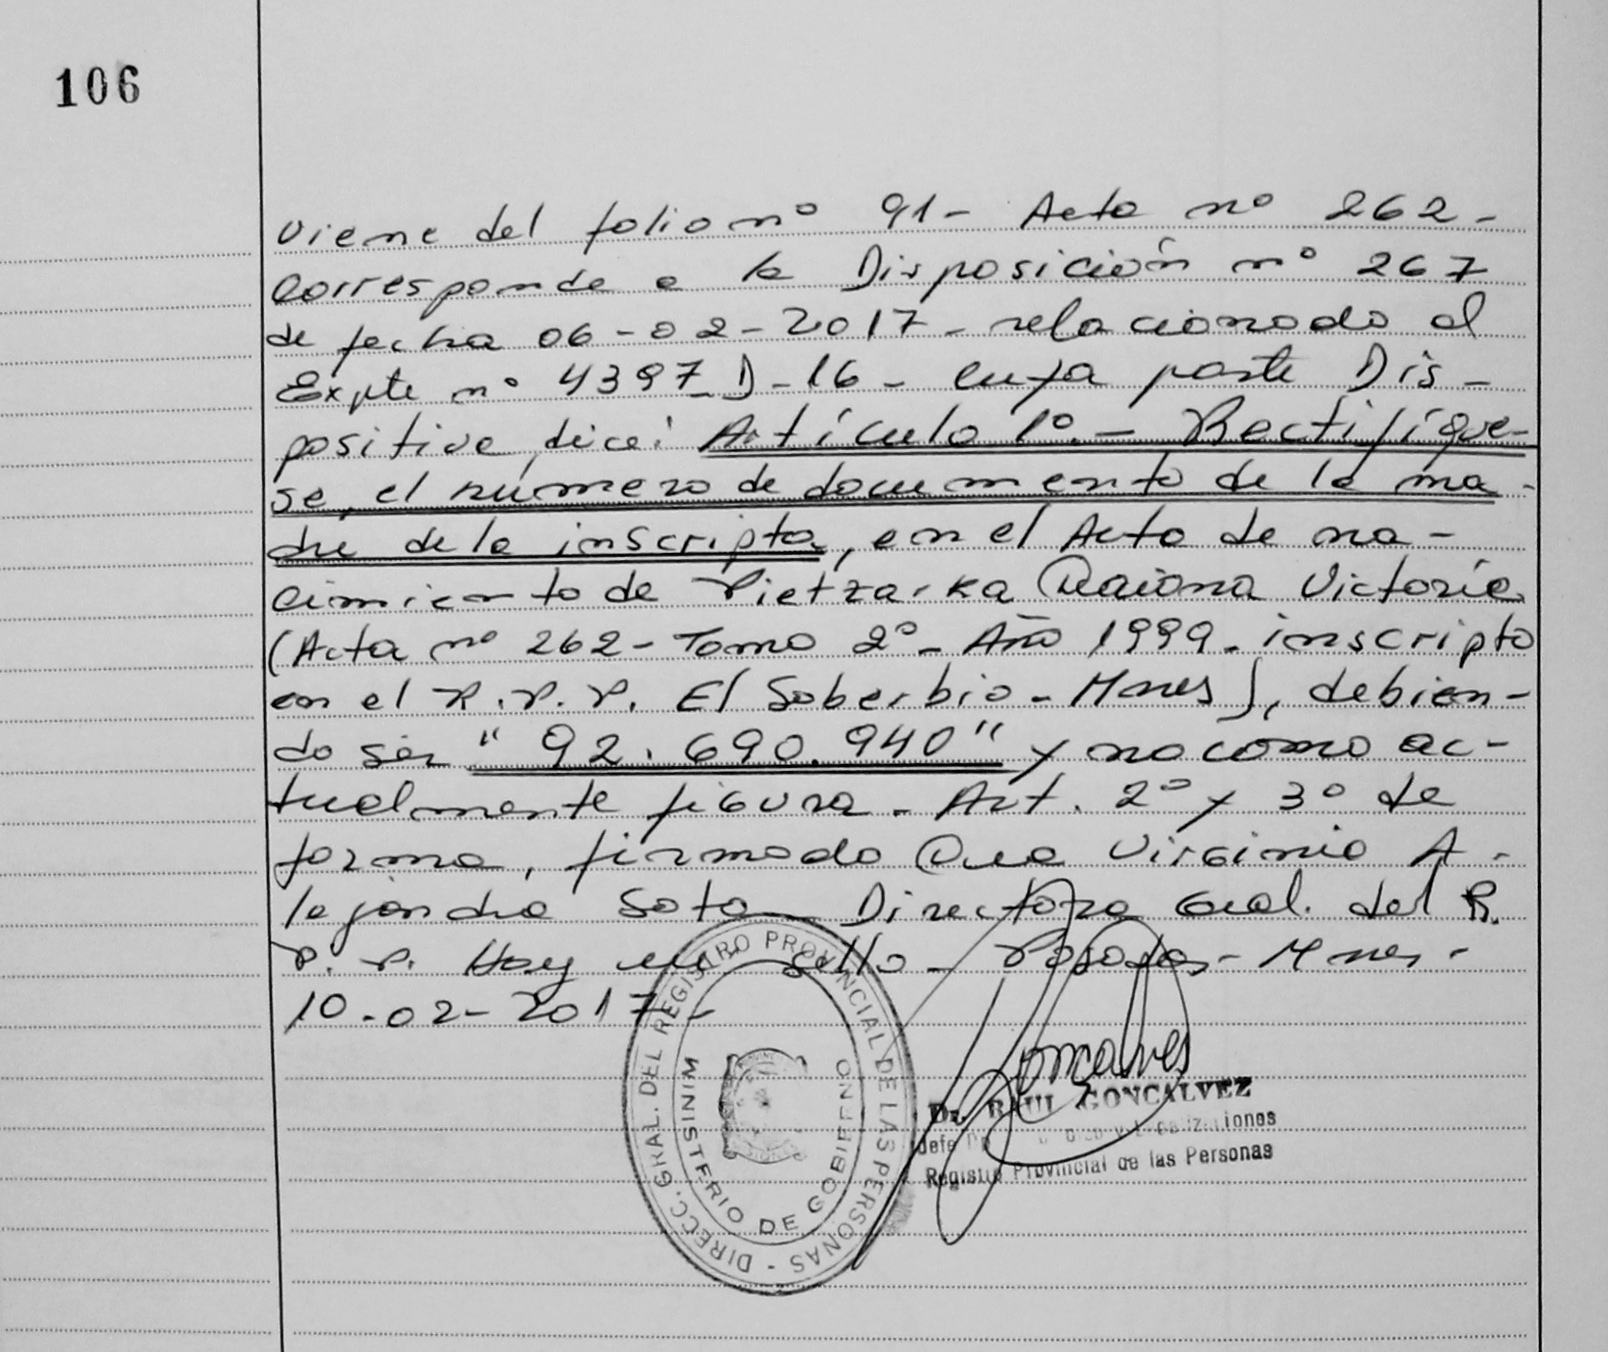 106
Viene del folio nº 91 - Acta nº 262 -
Corresponde a la Disposición nº 267
de fecha 06-02-2017 - relacionado al
Expte nº 4397-D-16 - cuya parte Dis-
positiva dice: Artículo 1º.- Rectifíque-
se, el número de documento de la ma-
dre de la inscripta, en el Acta de na-
cimiento de Pietzarka Daiana Victoria
(Acta nº 262 - Tomo 2º - Año 1999 - inscripta
en el R.P.P. El Soberbio - Mnes), debien-
do ser "92.690.940" y no como ac-
tualmente figura - Art. 2º y 3º de
forma, firmado Ana Virginia A-
lejandra Soto Directora Gral. del R.
P. P. Hay un sello - Posadas - Mnes -
10-02-2017 -
DIRECC. GRAL. DEL REGISTRO PROVINCIAL DE LAS PERSONAS -
MINISTERIO DE GOBIERNO
Goncalves
Dr. RAUL GONCALVEZ
Jefe
Registro Provincial de las Personas